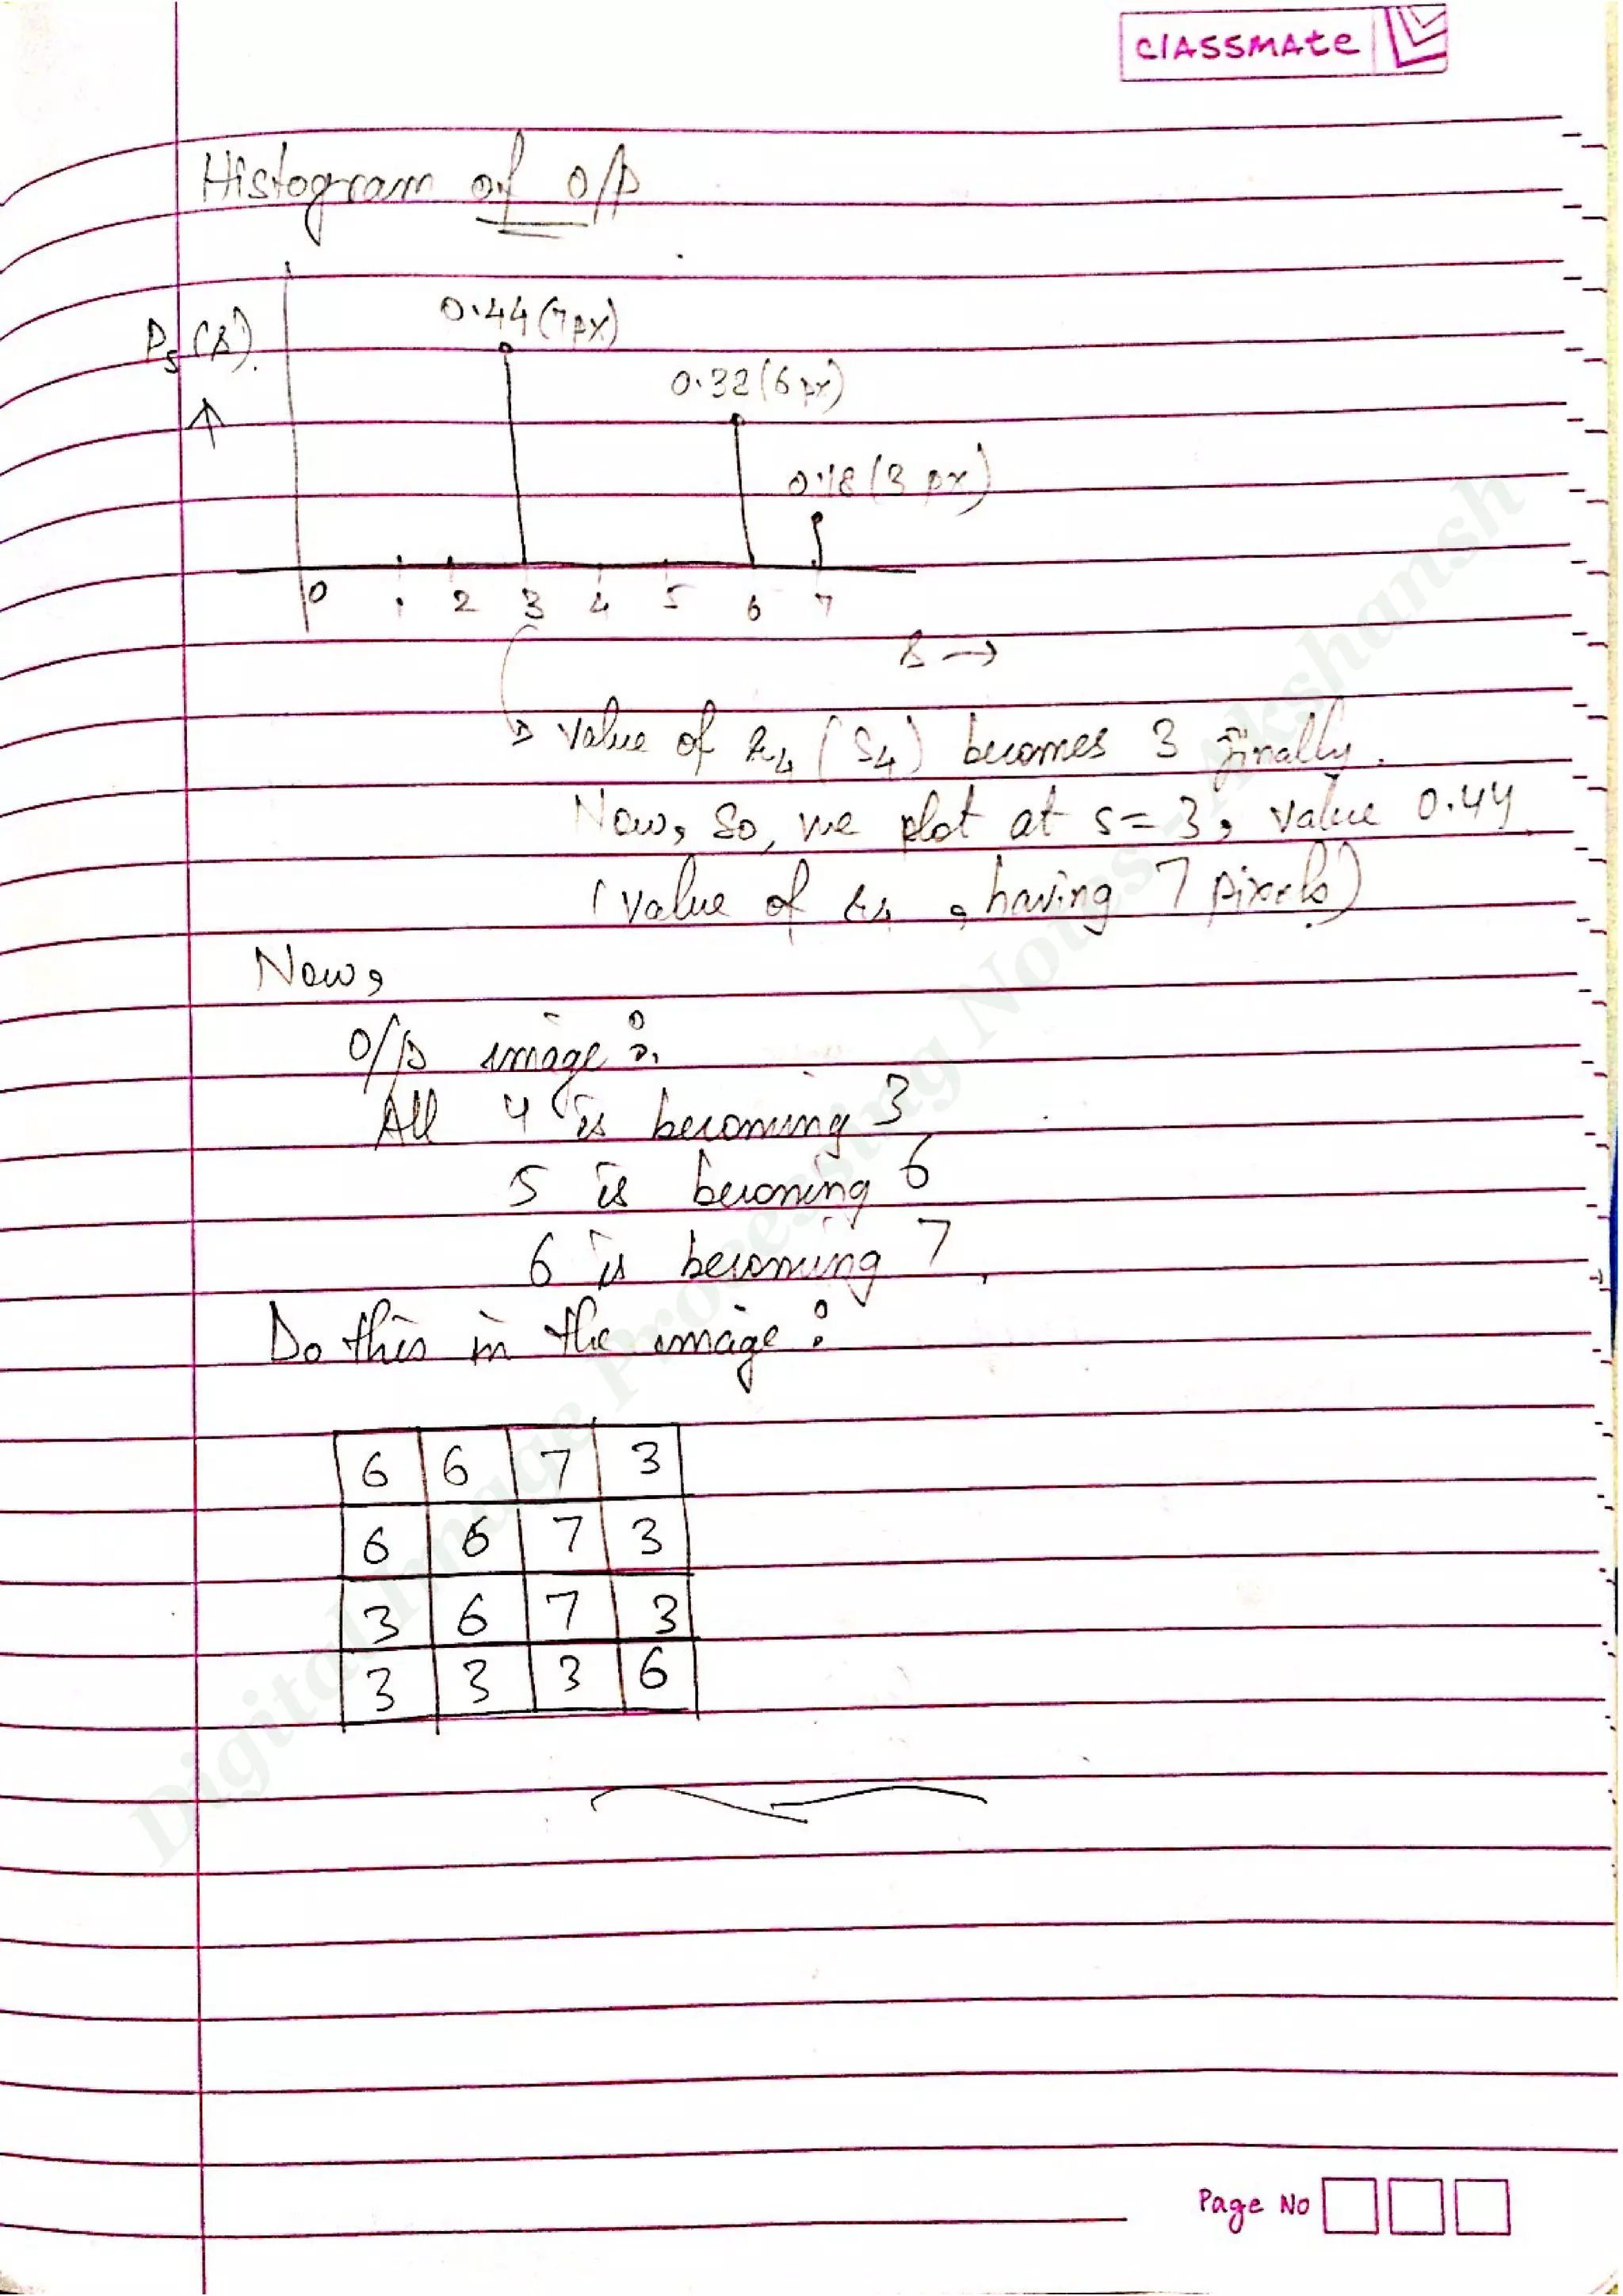 classmate
Histogram of O/P
0.44 (7px)
Ps(s)
0.32 (6 px)
↑
0.18 (3 px)
0 1 2 3 4 5 6 7
s →
→ value of r4 (S4) becomes 3 finally.
Now, So, we plot at s = 3, value 0.44
(value of r4, having 7 pixels)
Now,
O/P image :
All 4 is becoming 3
5 is becoming 6
6 is becoming 7.
Do this in the image :
6 6 7 3
6 6 7 3
3 6 7 3
3 3 3 6
Digital Image Processing Notes-Akshansh
Page No